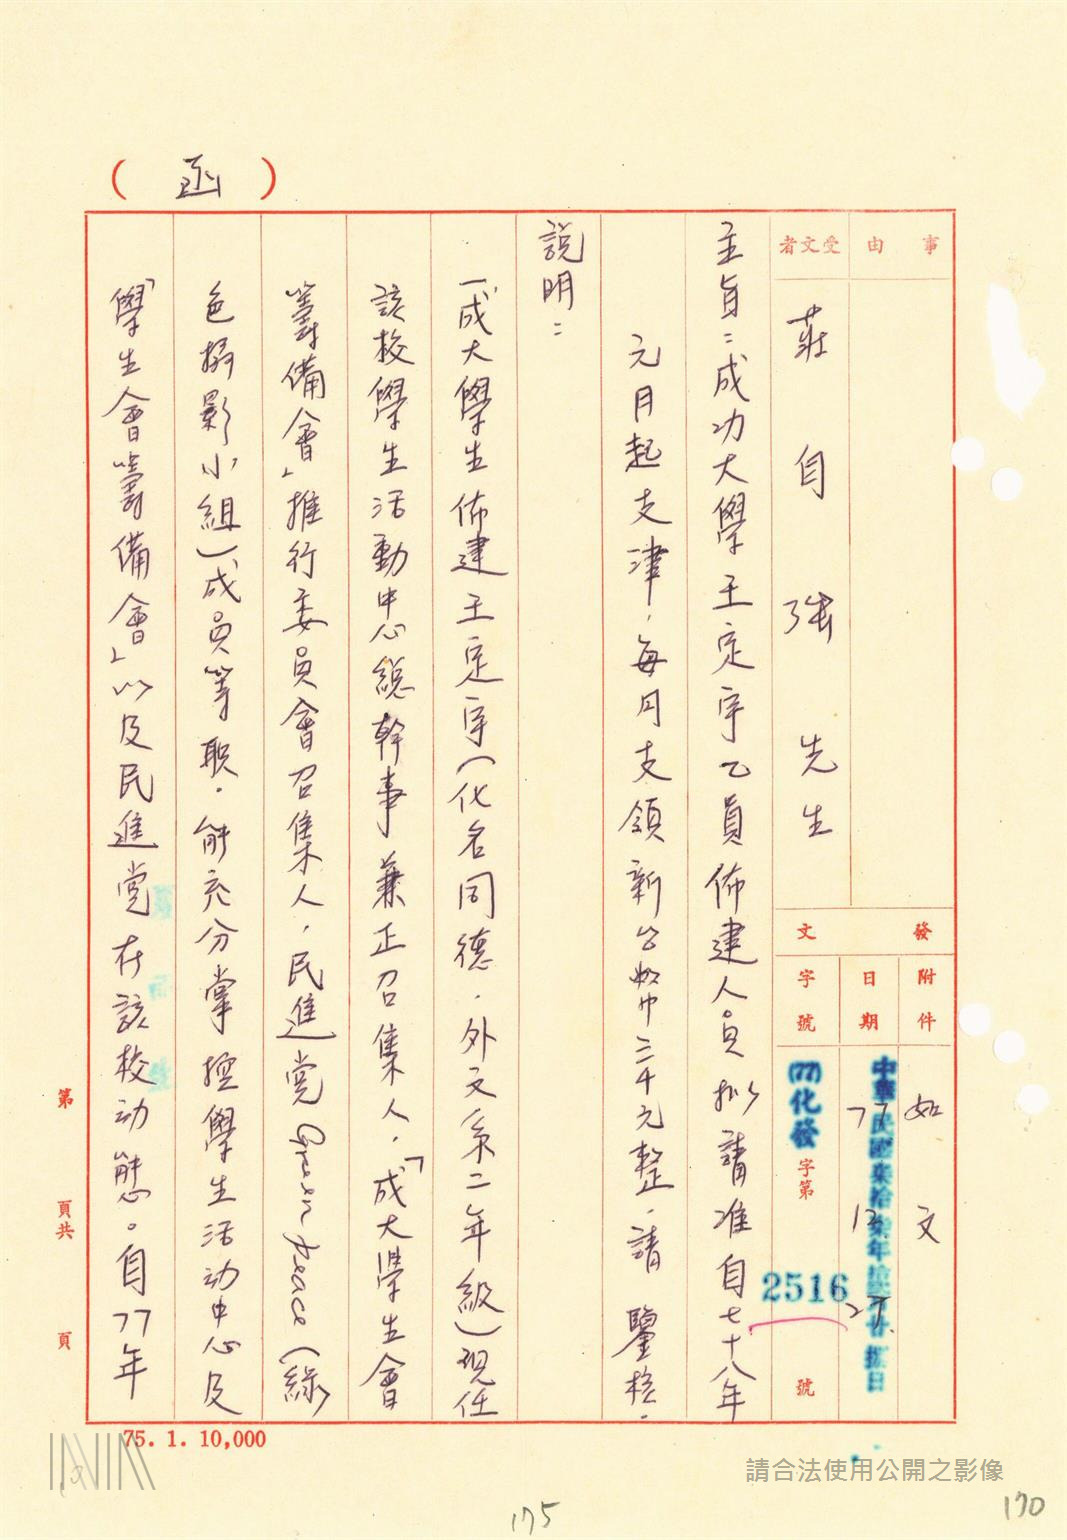 (函)
事由
受文者
莊自强先生
發文
附件
如文
日期
中華民國柒拾柒年拾貳月廿捌日
77
12
27.
字號
(77)化發
字第
2516
號
主旨：成功大學王定宇乙員佈建人員拟請准自七十八年
元月起支津，每月支領新台幣三千元整，請 鑒核。
說明：
一、成大學生佈建王定宇(化名同德，外文系二年級)現任
該校學生活動中心總幹事兼正召集人，「成大學生會
籌備會」推行委員會召集人，民進党Green peace(綠
色攝影小組)成員等职。能充分掌握學生活动中心及
「學生會籌備會」以及民進党在該校动態。自77年
第
頁共
頁
75. 1. 10,000
請合法使用公開之影像
175
170